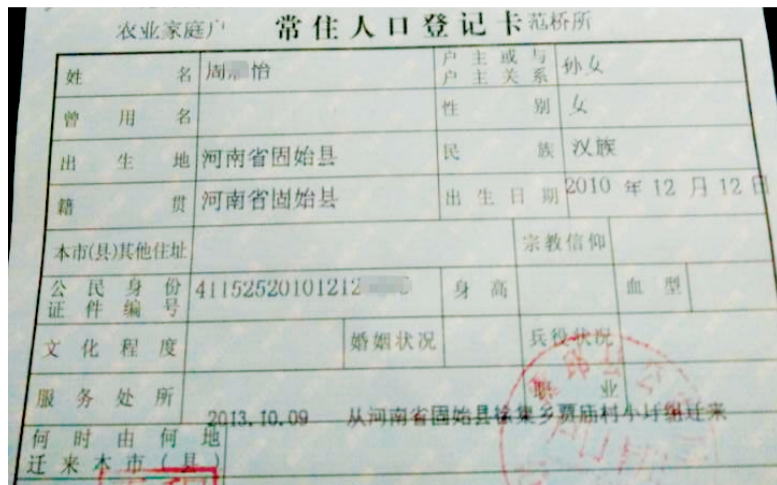 农业家庭户 常住人口登记卡 范桥所
姓名 周 怡 户主或与户主关系 孙女
曾用名 性别 女
出生地 河南省固始县 民族 汉族
籍贯 河南省固始县 出生日期 2010 年 12 月 12 日
本市(县)其他住址 宗教信仰
公民身份证件编号 41152520101212 身高 血型
文化程度 婚姻状况 兵役状况
服务处所 职业
何时由何地迁来本市(县) 2013.10.09 从河南省固始县徐集乡贾庙村小圩组迁来